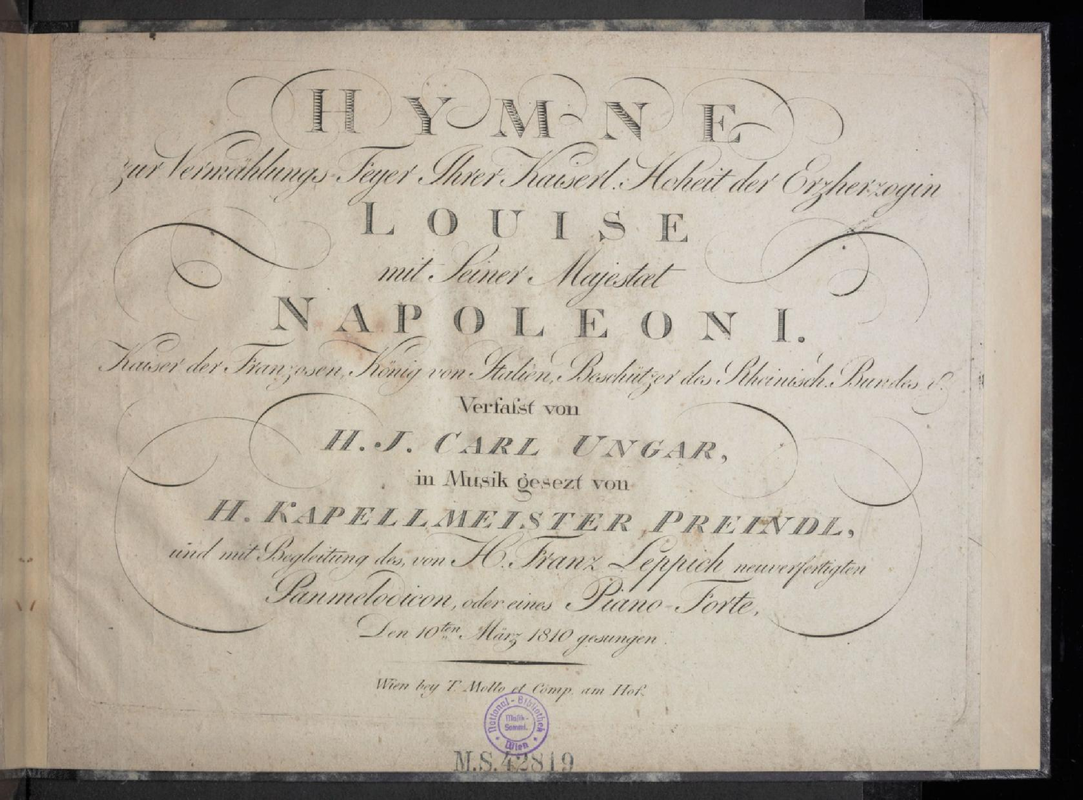 HYMNE
zur Vermählungs-Feyer Ihrer Kaiserl. Hoheit der Erzherzogin
LOUISE
mit Seiner Majestæt
NAPOLEON I.
Kaiser der Franzosen, König von Italien, Beschützer des Rheinisch. Bundes
Verfaſst von
H. J. CARL UNGAR,
in Musik gesezt von
H. KAPELLMEISTER PREINDL,
und mit Begleitung des, von H. Franz Leppich neuverfertigten
Panmelodicon, oder eines Piano-Forte,
Den 10ten März 1810 gesungen.
Wien bey T. Mollo et Comp. am Hof.
National-Bibliothek
Musik-
Samml.
Wien
M.S. 42819